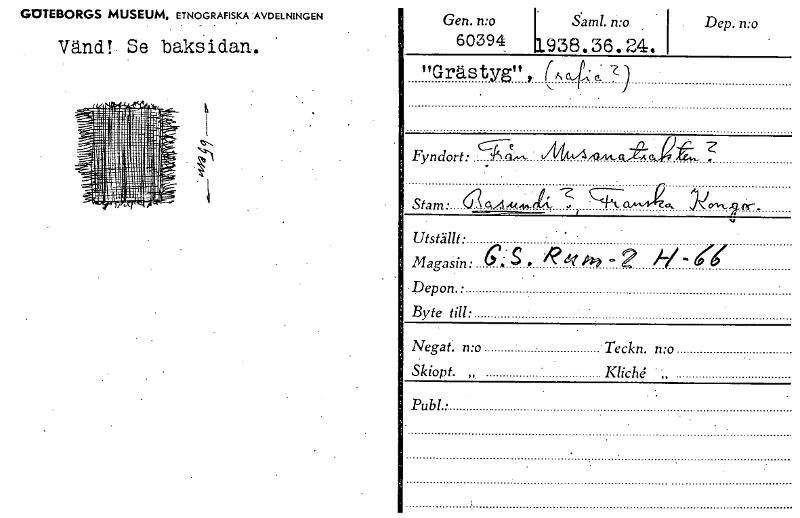 GÖTEBORGS MUSEUM, ETNOGRAFISKA AVDELNINGEN
Vänd! Se baksidan.
65 cm
Gen. n:o
60394
Saml. n:o
1938.36.24.
Dep. n:o
"Grästyg", (rafia?)
Fyndort: Från Musanatrakten?
Stam: Basundi?, Franska Kongo.
Utställt:
Magasin: G.S. Rum-2 H-66
Depon.:
Byte till:
Negat. n:o Teckn. n:o
Skiopt. „ Kliché „
Publ.: